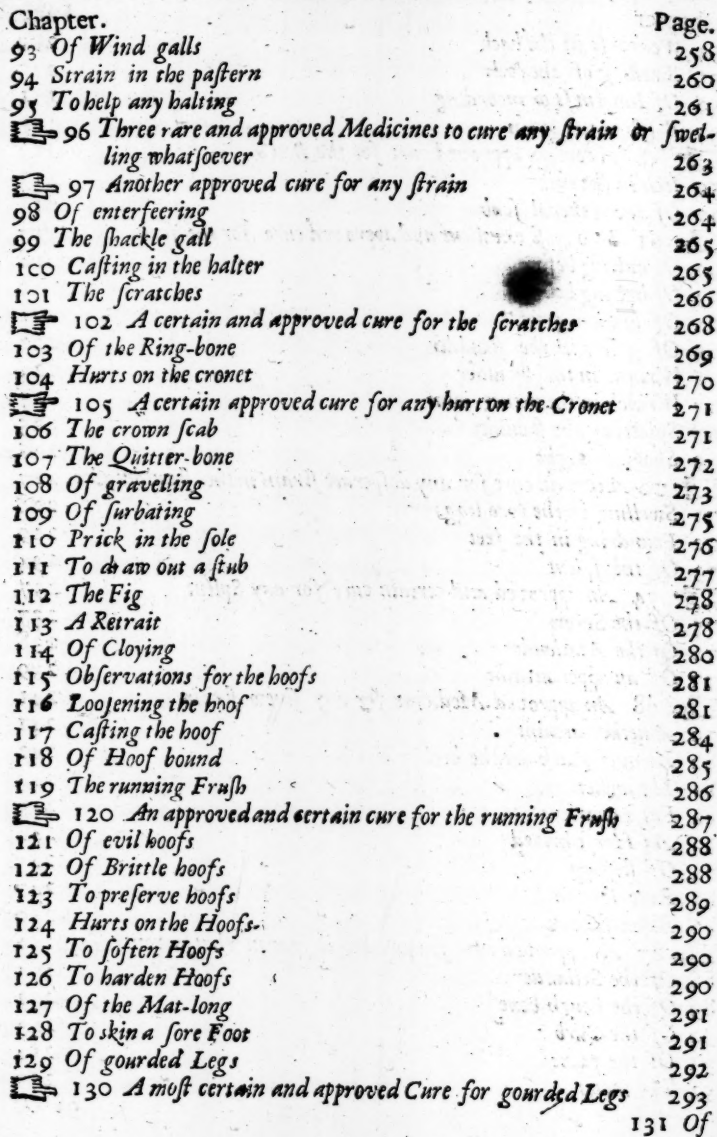 Chapter. Page.
93 Of Wind galls 258
94 Strain in the paſtern 260
95 To help any halting 261
☞ 96 Three rare and approved Medicines to cure any ſtrain or ſwel-
ling whatſoever 263
☞ 97 Another approved cure for any ſtrain 264
98 Of enterfeering 264
99 The ſhackle gall 265
100 Caſting in the halter 265
101 The ſcratches 266
☞ 102 A certain and approved cure for the ſcratches 268
103 Of the Ring-bone 269
104 Hurts on the cronet 270
☞ 105 A certain approved cure for any hurt on the Cronet 271
106 The crown ſcab 271
107 The Quitter-bone 272
108 Of gravelling 273
109 Of ſurbating 275
110 Prick in the ſole 276
111 To draw out a ſtub 277
112 The Fig 278
113 A Retrait 278
114 Of Cloying 280
115 Obſervations for the hoofs 281
116 Looſening the hoof 281
117 Caſting the hoof 284
118 Of Hoof bound 285
119 The running Fruſh 286
☞ 120 An approved and certain cure for the running Fruſh 287
121 Of evil hoofs 288
122 Of Brittle hoofs 288
123 To preſerve hoofs 289
124 Hurts on the Hoofs. 290
125 To ſoften Hoofs 290
126 To harden Hoofs 290
127 Of the Mat-long 291
128 To skin a ſore Foot 291
129 Of gourded Legs 292
☞ 130 A moſt certain and approved Cure for gourded Legs 293
131 Of